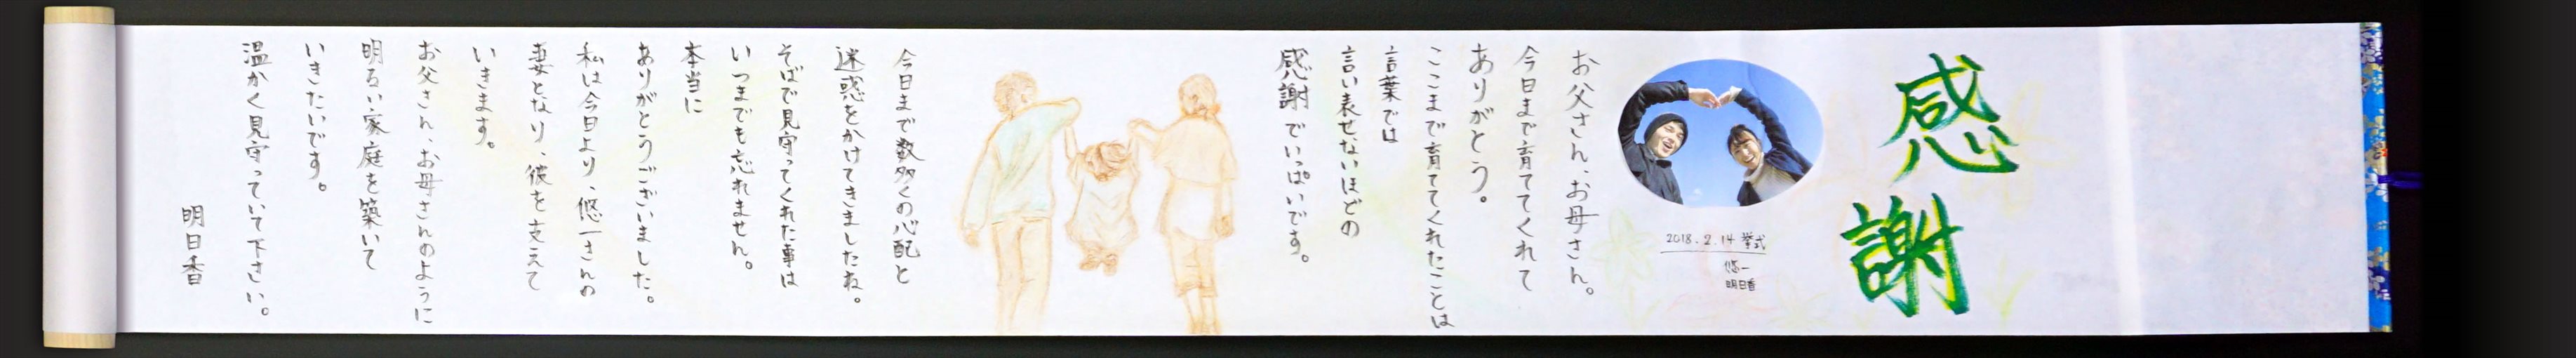 感謝
2018.2.14 挙式
悠一
明日香
お父さん、お母さん。
今日まで育ててくれて
ありがとう。
ここまで育ててくれたことは
言葉では
言い表せないほどの
感謝でいっぱいです。
今日まで数多くの心配と
迷惑をかけてきましたね。
そばで見守ってくれた事は
いつまでも忘れません。
本当に
ありがとうございました。
私は今日より、悠一さんの
妻となり、彼を支えて
いきます。
お父さん、お母さんのように
明るい家庭を築いて
いきたいです。
温かく見守っていて下さい。
明日香